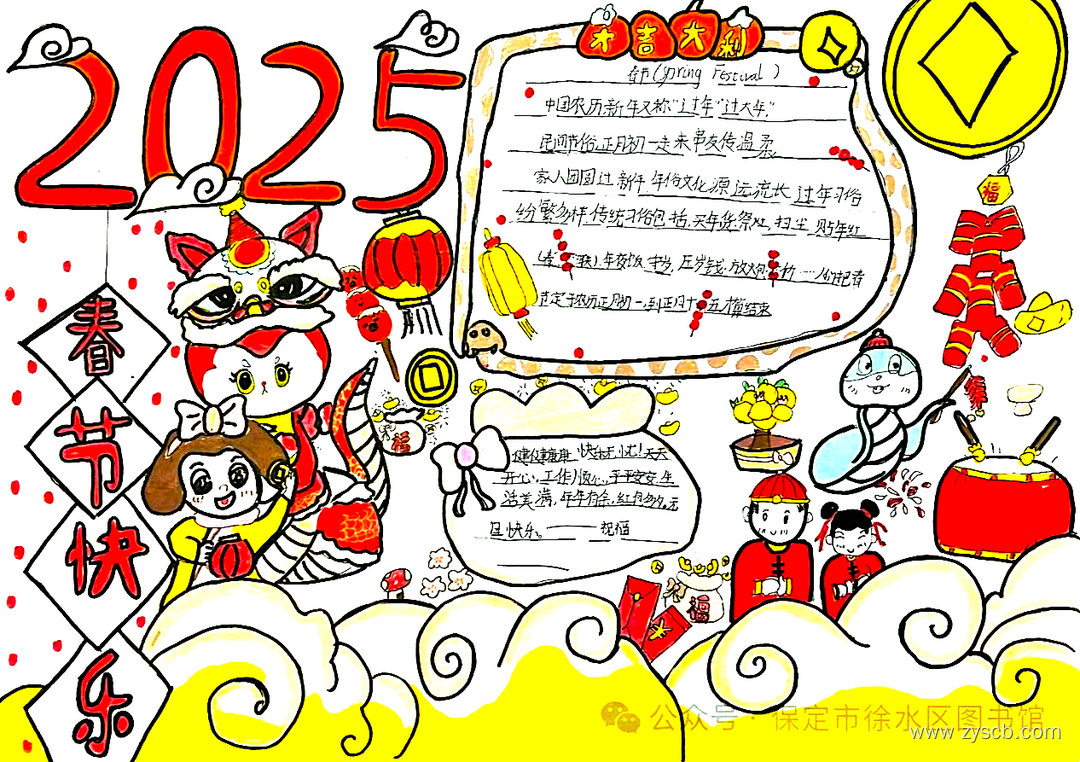 2025
大吉大利
春节快乐
春节(Spring Festival)
中国农历新年又称"过年""过大年"
民间节俗.正月初一走亲串友传温柔
家人团圆过新年.年俗文化源远流长 过年习俗
纷繁多样.传统习俗包括.买年货祭灶.扫尘 贴年红
年夜饭 守岁.压岁钱.放
定于农历正月初一,到正月十五 结束
福
福
快乐
开心,工作 平平安安 生
活美满,年年有余,红包多多.元
旦快乐。 祝福
福
公众号·保定市徐水区图书馆
www.zyscb.com